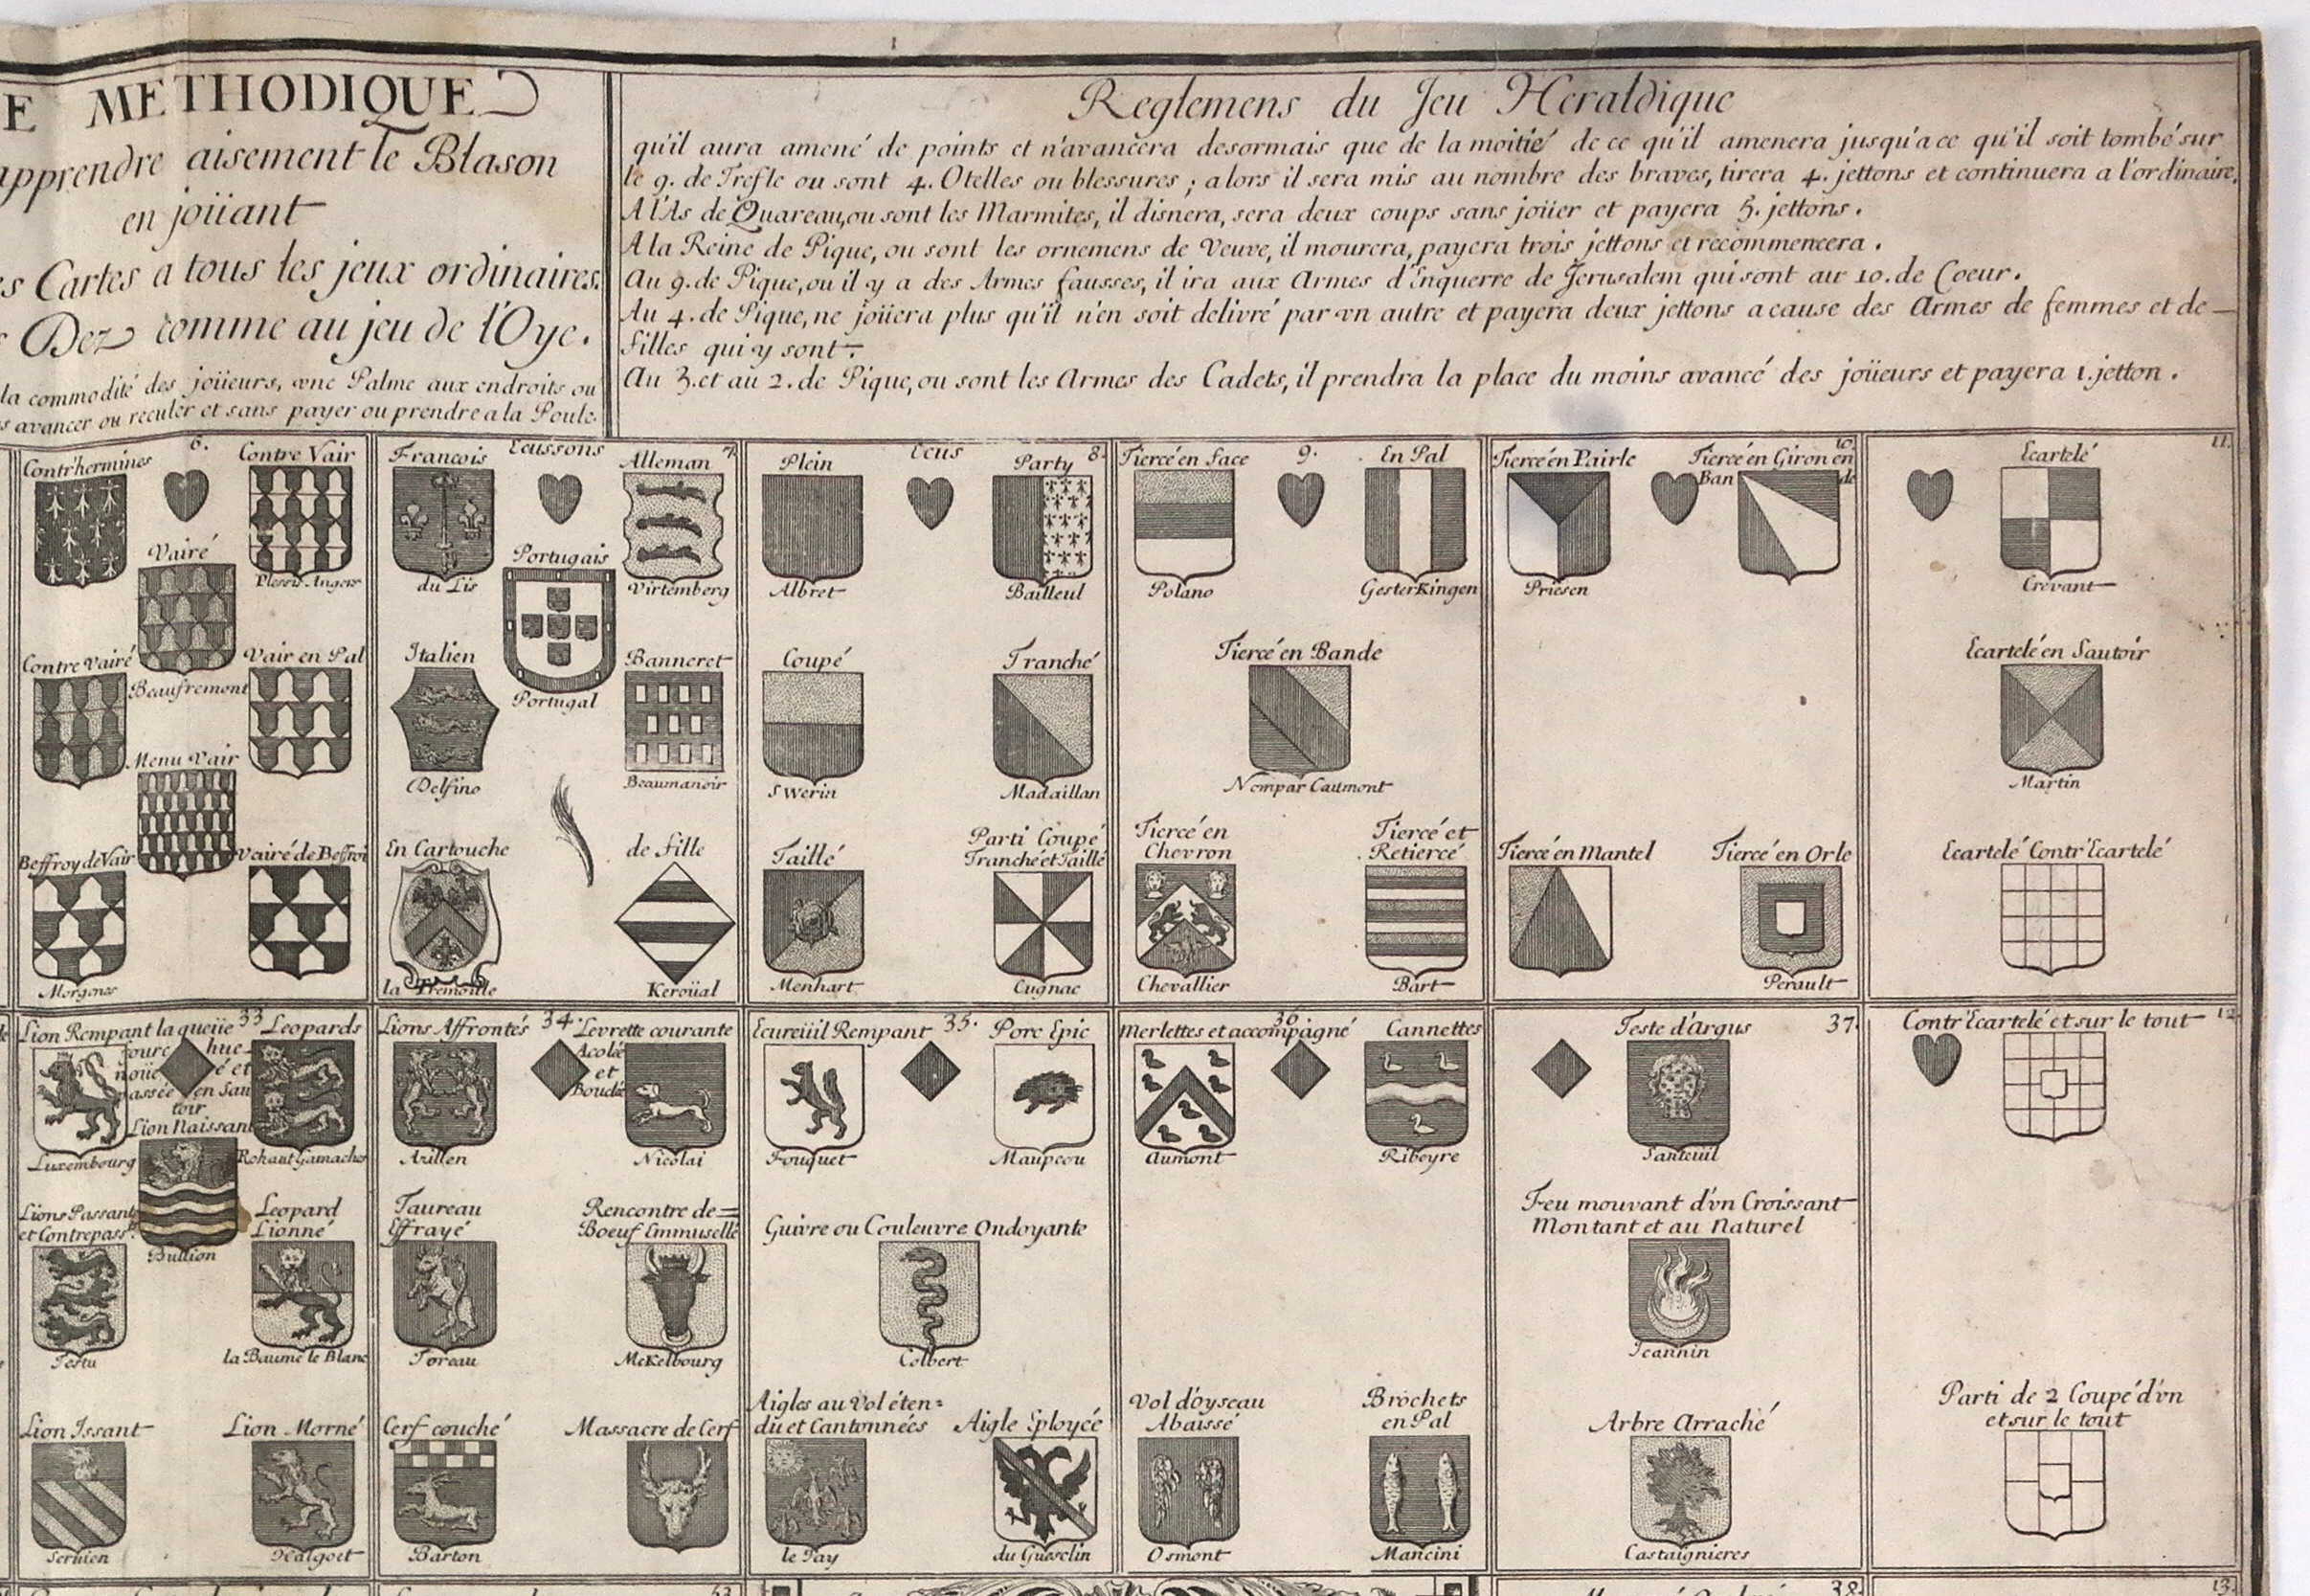 E METHODIQUE
apprendre aisement le Blason
en joüant
es Cartes a tous les jeux ordinaires.
Dez comme au jeu de l'Oye.
la commodité des joüeurs, vne Palme aux endroits ou
s avancer ou reculer et sans payer ou prendre a la Poule.
Reglemens du Jeu Heraldique
qu'il aura amené de points et n'avancera desormais que de la moitié de ce qu'il amenera jusqu'a ce qu'il soit tombé sur
le 9. de Trefle ou sont 4. Otelles ou blessures ; alors il sera mis au nombre des braves, tirera 4. jettons et continuera a l'ordinaire.
A l'As de Quareau, ou sont les Marmites, il disnera, sera deux coups sans joüer et payera 5. jettons.
A la Reine de Pique, ou sont les ornemens de Veuve, il mourera, payera trois jettons et recommencera.
Au 9. de Pique, ou il y a des Armes fausses, il ira aux Armes d'Enquerre de Jerusalem qui sont au 10. de Coeur.
Au 4. de Pique, ne joüera plus qu'il n'en soit delivré par vn autre et payera deux jettons a cause des Armes de femmes et de
filles qui y sont.
Au 3. et au 2. de Pique, ou sont les Armes des Cadets, il prendra la place du moins avancé des joüeurs et payera 1. jetton.
6.
Contr'hermines
Contre Vair
Plessis Angers
Vairé
Beaufremont
Contre Vairé
Vair en Pal
Menu Vair
Beffroy de Vair
Morgones
Vairé de Beffroi
Ecussons
7.
Francois
du Lis
Alleman
Virtemberg
Portugais
Portugal
Italien
Delfino
Banneret
Beaumanoir
En Cartouche
la Tremoille
de fille
Keroüal
Ecus
8.
Plein
Albret
Party
Bailleul
Coupé
Swerin
Tranché
Madaillan
Taillé
Menhart
Parti Coupé
Tranché et Taillé
Cugnac
9.
Tiercé en face
Polano
En Pal
Gesterkingen
Tiercé en Bande
Nompar Caumont
Tiercé en
Chevron
Chevallier
Tiercé et
Retiercé
Bart
10.
Tiercé en Pairle
Priesen
Tiercé en Giron en
Ban de
Tiercé en Mantel
Tiercé en Orle
Perault
11.
Ecartelé
Crevant
Ecartelé en Sautoir
Martin
Ecartelé Contr'Ecartelé
33
Lion Rempant la queüe
fourchue
noüé et
passée en Sau
toir
Luxembourg
Leopards
Rohaut Gamaches
Lion Naissant
Bullion
Lions Passant
et Contrepass.ᵗ
Testu
Leopard
Lionné
la Baume le Blanc
Lion Issant
Seruien
Lion Morné
Halgoet
34.
Lions Affrontés
Levrette courante
Acolée
et
Bouclée
Nicolai
Taureau
Effrayé
Toreau
Rencontre de
Boeuf Emmuselle
Mekelbourg
Cerf couché
Barton
Massacre de Cerf
35.
Ecureüil Rempant
Fouquet
Porc Epic
Maupeou
Guivre ou Couleuvre Ondoyante
Colbert
Aigles au Vol éten=
du et Cantonnées
le Tay
Aigle Eployée
du Guesclin
36.
Merlettes et accompagné
Aumont
Cannettes
Ribeyre
Vol d'oyseau
Abaissé
Osmont
Brochets
en Pal
Mancini
37.
Teste d'Argus
Santeüil
Feu mouvant d'vn Croissant
Montant et au Naturel
Jeannin
Arbre Arraché
Castaignieres
12
Contr'Ecartelé et sur le tout
Parti de 2 Coupé d'vn
et sur le tout
38.
13.